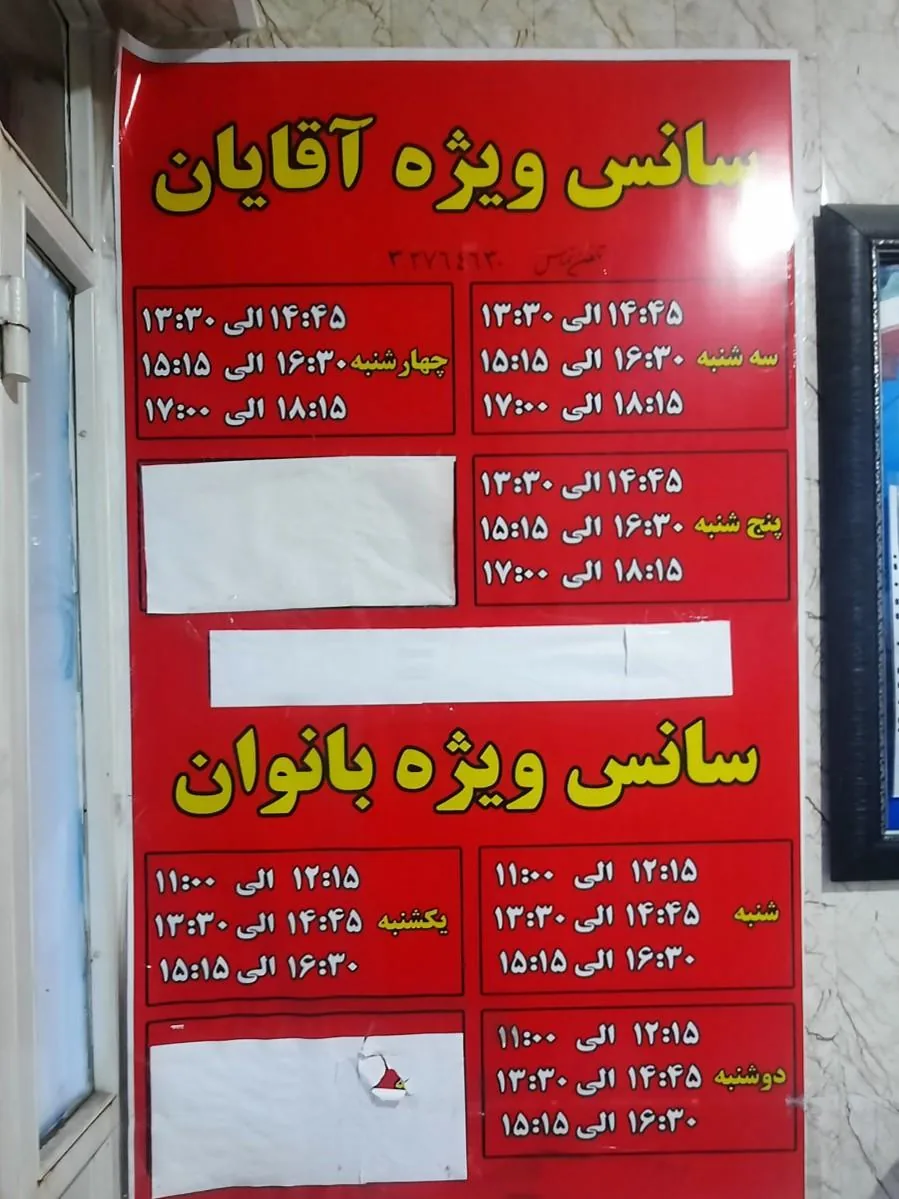 سانس ویژه آقایان
تلفن تماس
۱۴:۴۵ الی ۱۳:۳۰
سه شنبه ۱۶:۳۰ الی ۱۵:۱۵
۱۸:۱۵ الی ۱۷:۰۰
۱۴:۴۵ الی ۱۳:۳۰
چهارشنبه ۱۶:۳۰ الی ۱۵:۱۵
۱۸:۱۵ الی ۱۷:۰۰
۱۴:۴۵ الی ۱۳:۳۰
پنج شنبه ۱۶:۳۰ الی ۱۵:۱۵
۱۸:۱۵ الی ۱۷:۰۰
سانس ویژه بانوان
۱۲:۱۵ الی ۱۱:۰۰
شنبه ۱۴:۴۵ الی ۱۳:۳۰
۱۶:۳۰ الی ۱۵:۱۵
۱۲:۱۵ الی ۱۱:۰۰
یکشنبه ۱۴:۴۵ الی ۱۳:۳۰
۱۶:۳۰ الی ۱۵:۱۵
۱۲:۱۵ الی ۱۱:۰۰
دوشنبه ۱۴:۴۵ الی ۱۳:۳۰
۱۶:۳۰ الی ۱۵:۱۵